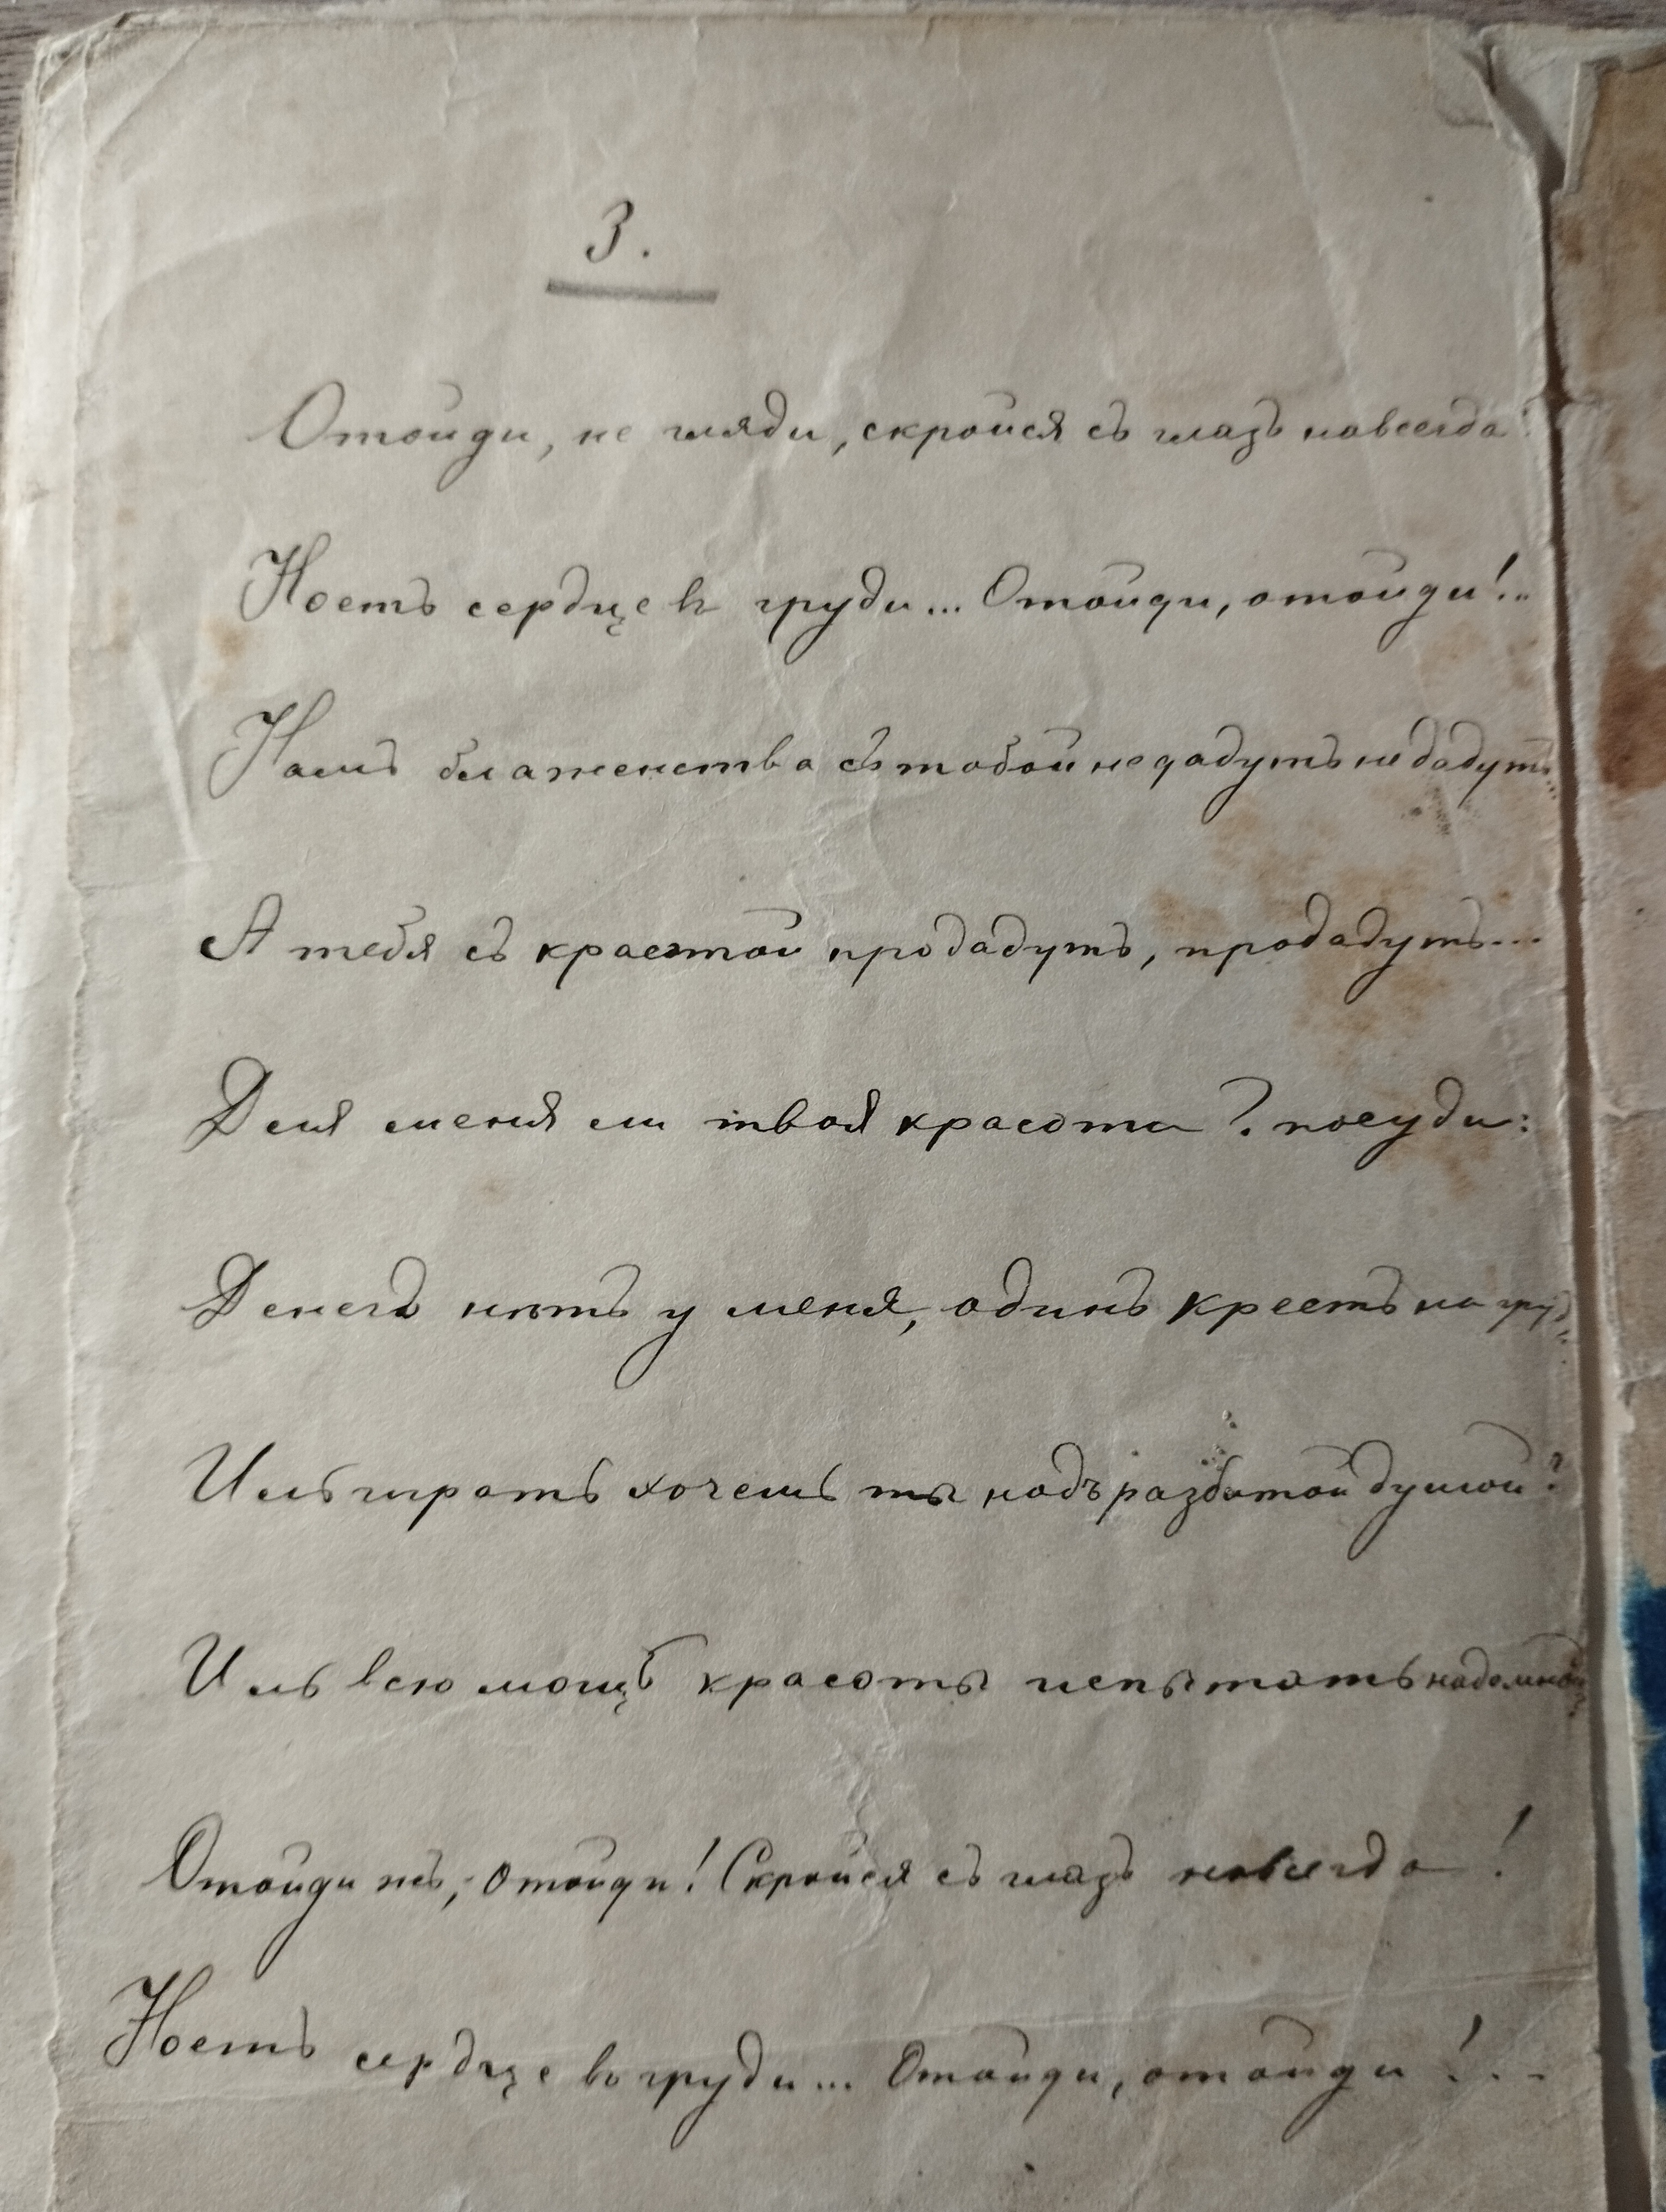 3.
Отойди, не гляди, скройся съ глазъ навсегда!
Ноетъ сердце въ груди... Отойди, отойди!..
Намъ блаженства съ тобой не дадутъ не дадутъ...
А тебя съ красотой продадутъ, продадутъ...
Для меня ли твоя красота? посуди:
Денегъ нѣтъ у меня, одинъ крестъ на груд...
Иль играть хочешь ты надъ разбитой душой?
Иль всю мощь красоты испытать надо мной?
Отойди жъ, отойди! Скройся съ глазъ навсегда!
Ноетъ сердце въ груди... Отойди, отойди!...